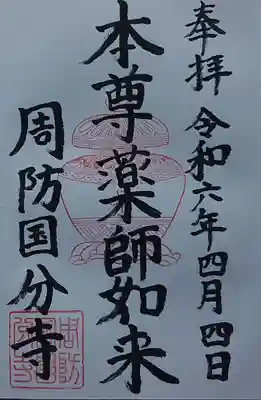 奉拝 令和六年四月四日
本尊薬師如来
周防国分寺
周防国分寺